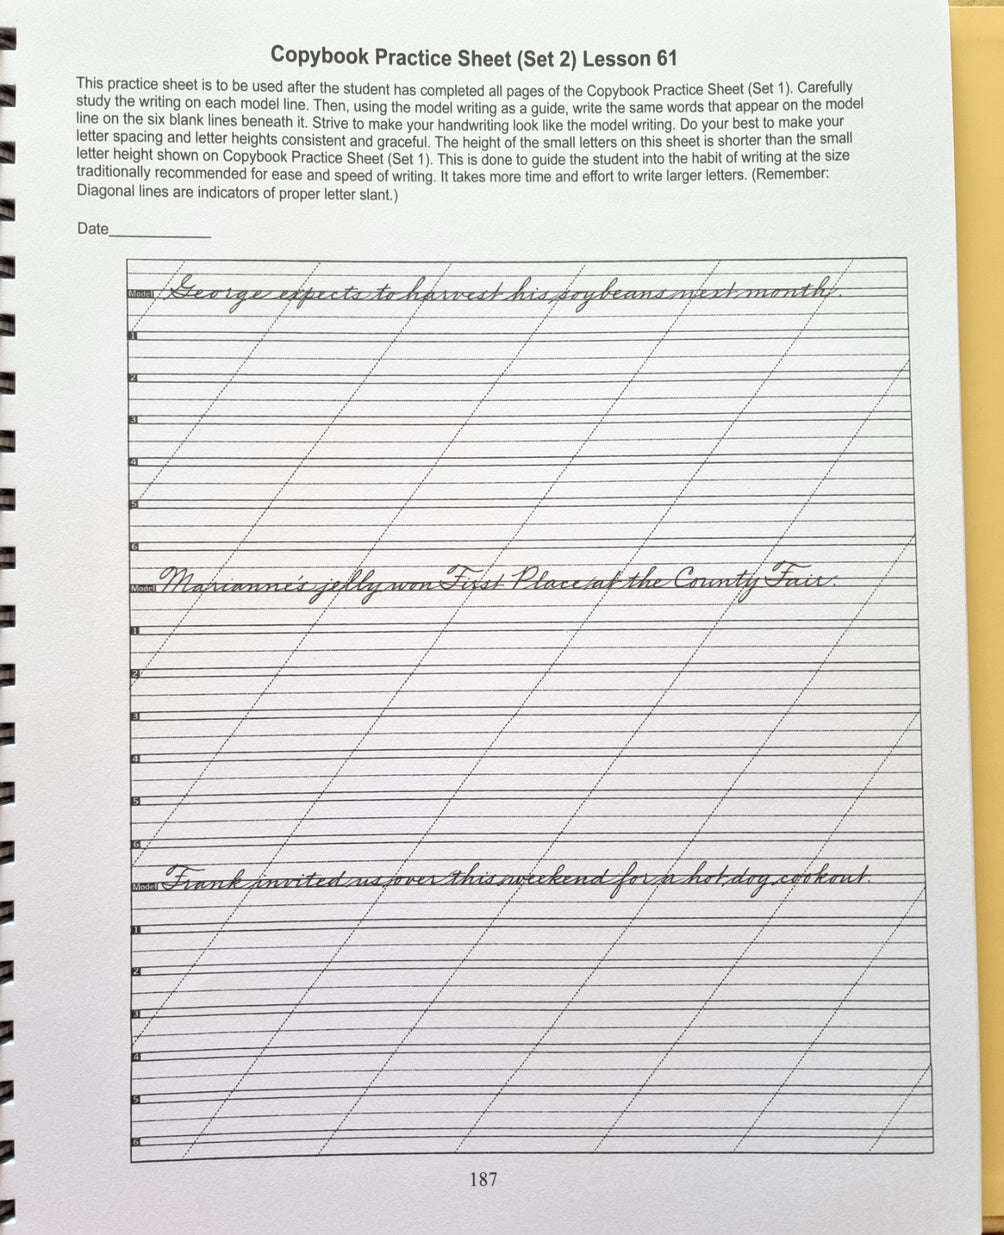 Copybook Practice Sheet (Set 2) Lesson 61
This practice sheet is to be used after the student has completed all pages of the Copybook Practice Sheet (Set 1). Carefully
study the writing on each model line. Then, using the model writing as a guide, write the same words that appear on the model
line on the six blank lines beneath it. Strive to make your handwriting look like the model writing. Do your best to make your
letter spacing and letter heights consistent and graceful. The height of the small letters on this sheet is shorter than the small
letter height shown on Copybook Practice Sheet (Set 1). This is done to guide the student into the habit of writing at the size
traditionally recommended for ease and speed of writing. It takes more time and effort to write larger letters. (Remember:
Diagonal lines are indicators of proper letter slant.)
Date
Model George expects to harvest his soybeans next month.
1
2
3
4
5
6
Model Marianne's jelly won First Place at the County Fair.
1
2
3
4
5
6
Model Frank invited us over this weekend for a hot dog cookout.
1
2
3
4
5
6
187